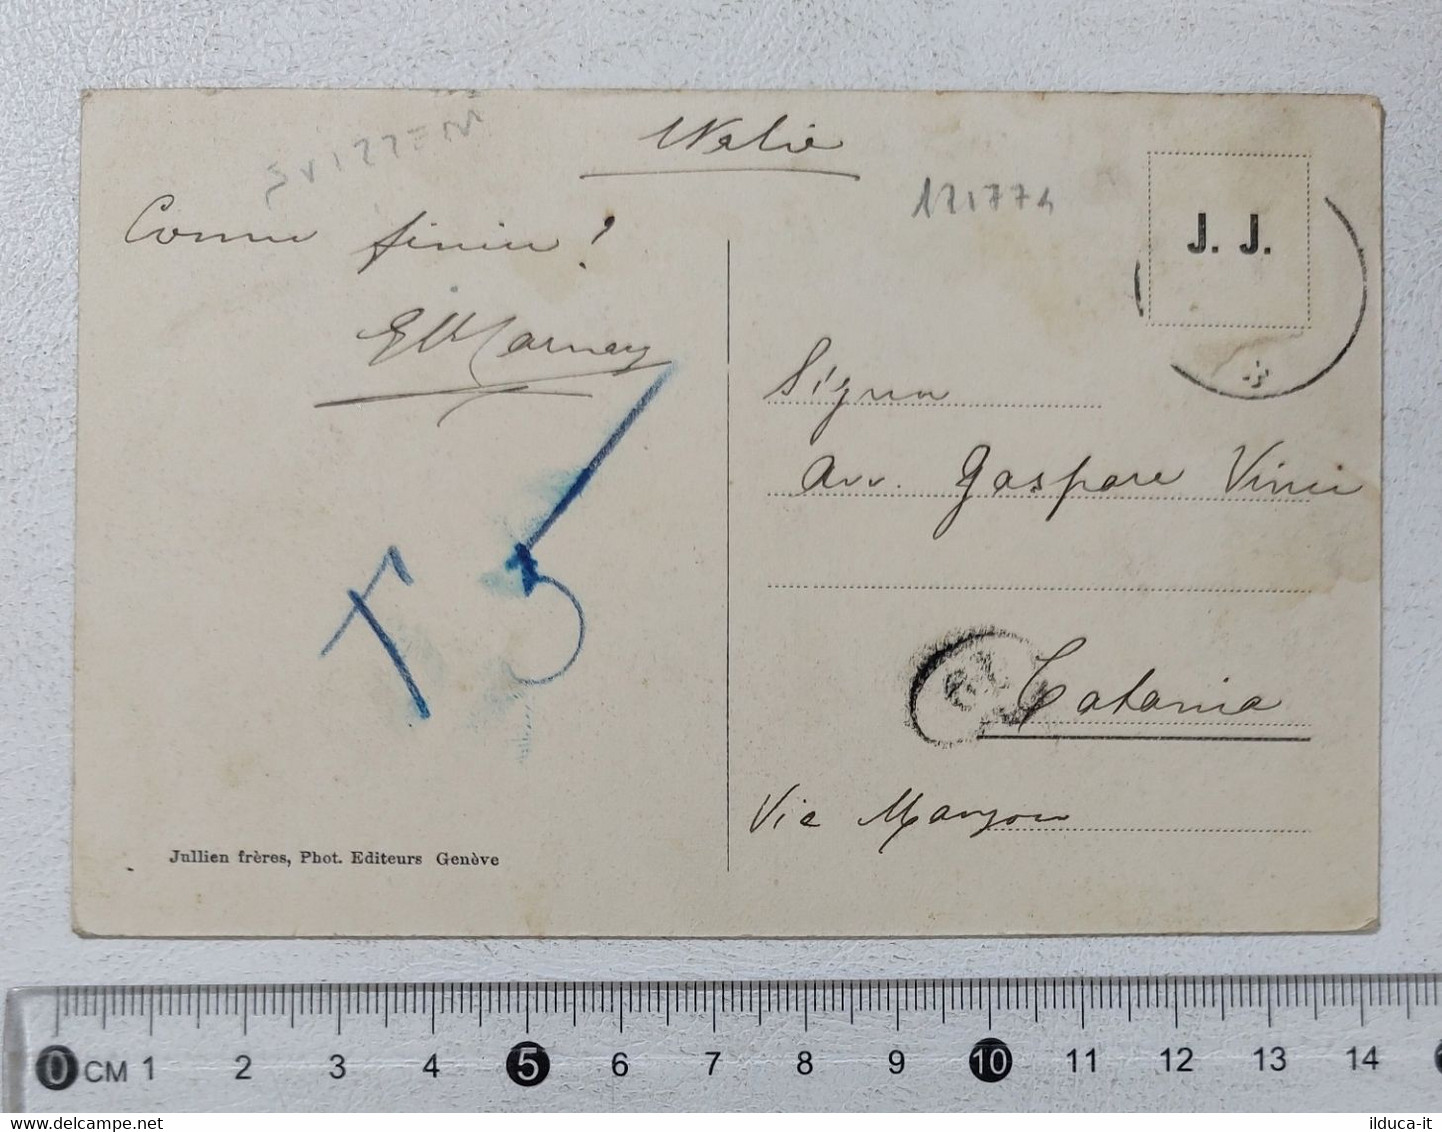 SVIZZERA
Italie
121774
Comm finiu!
J. J.
Signor
Avv. Gaspare Vinci
Catania
Via Manzoni
T 5
Jullien frères, Phot. Editeurs Genève
0 CM 1 2 3 4 5 6 7 8 9 10 11 12 13 14
ilduca-it